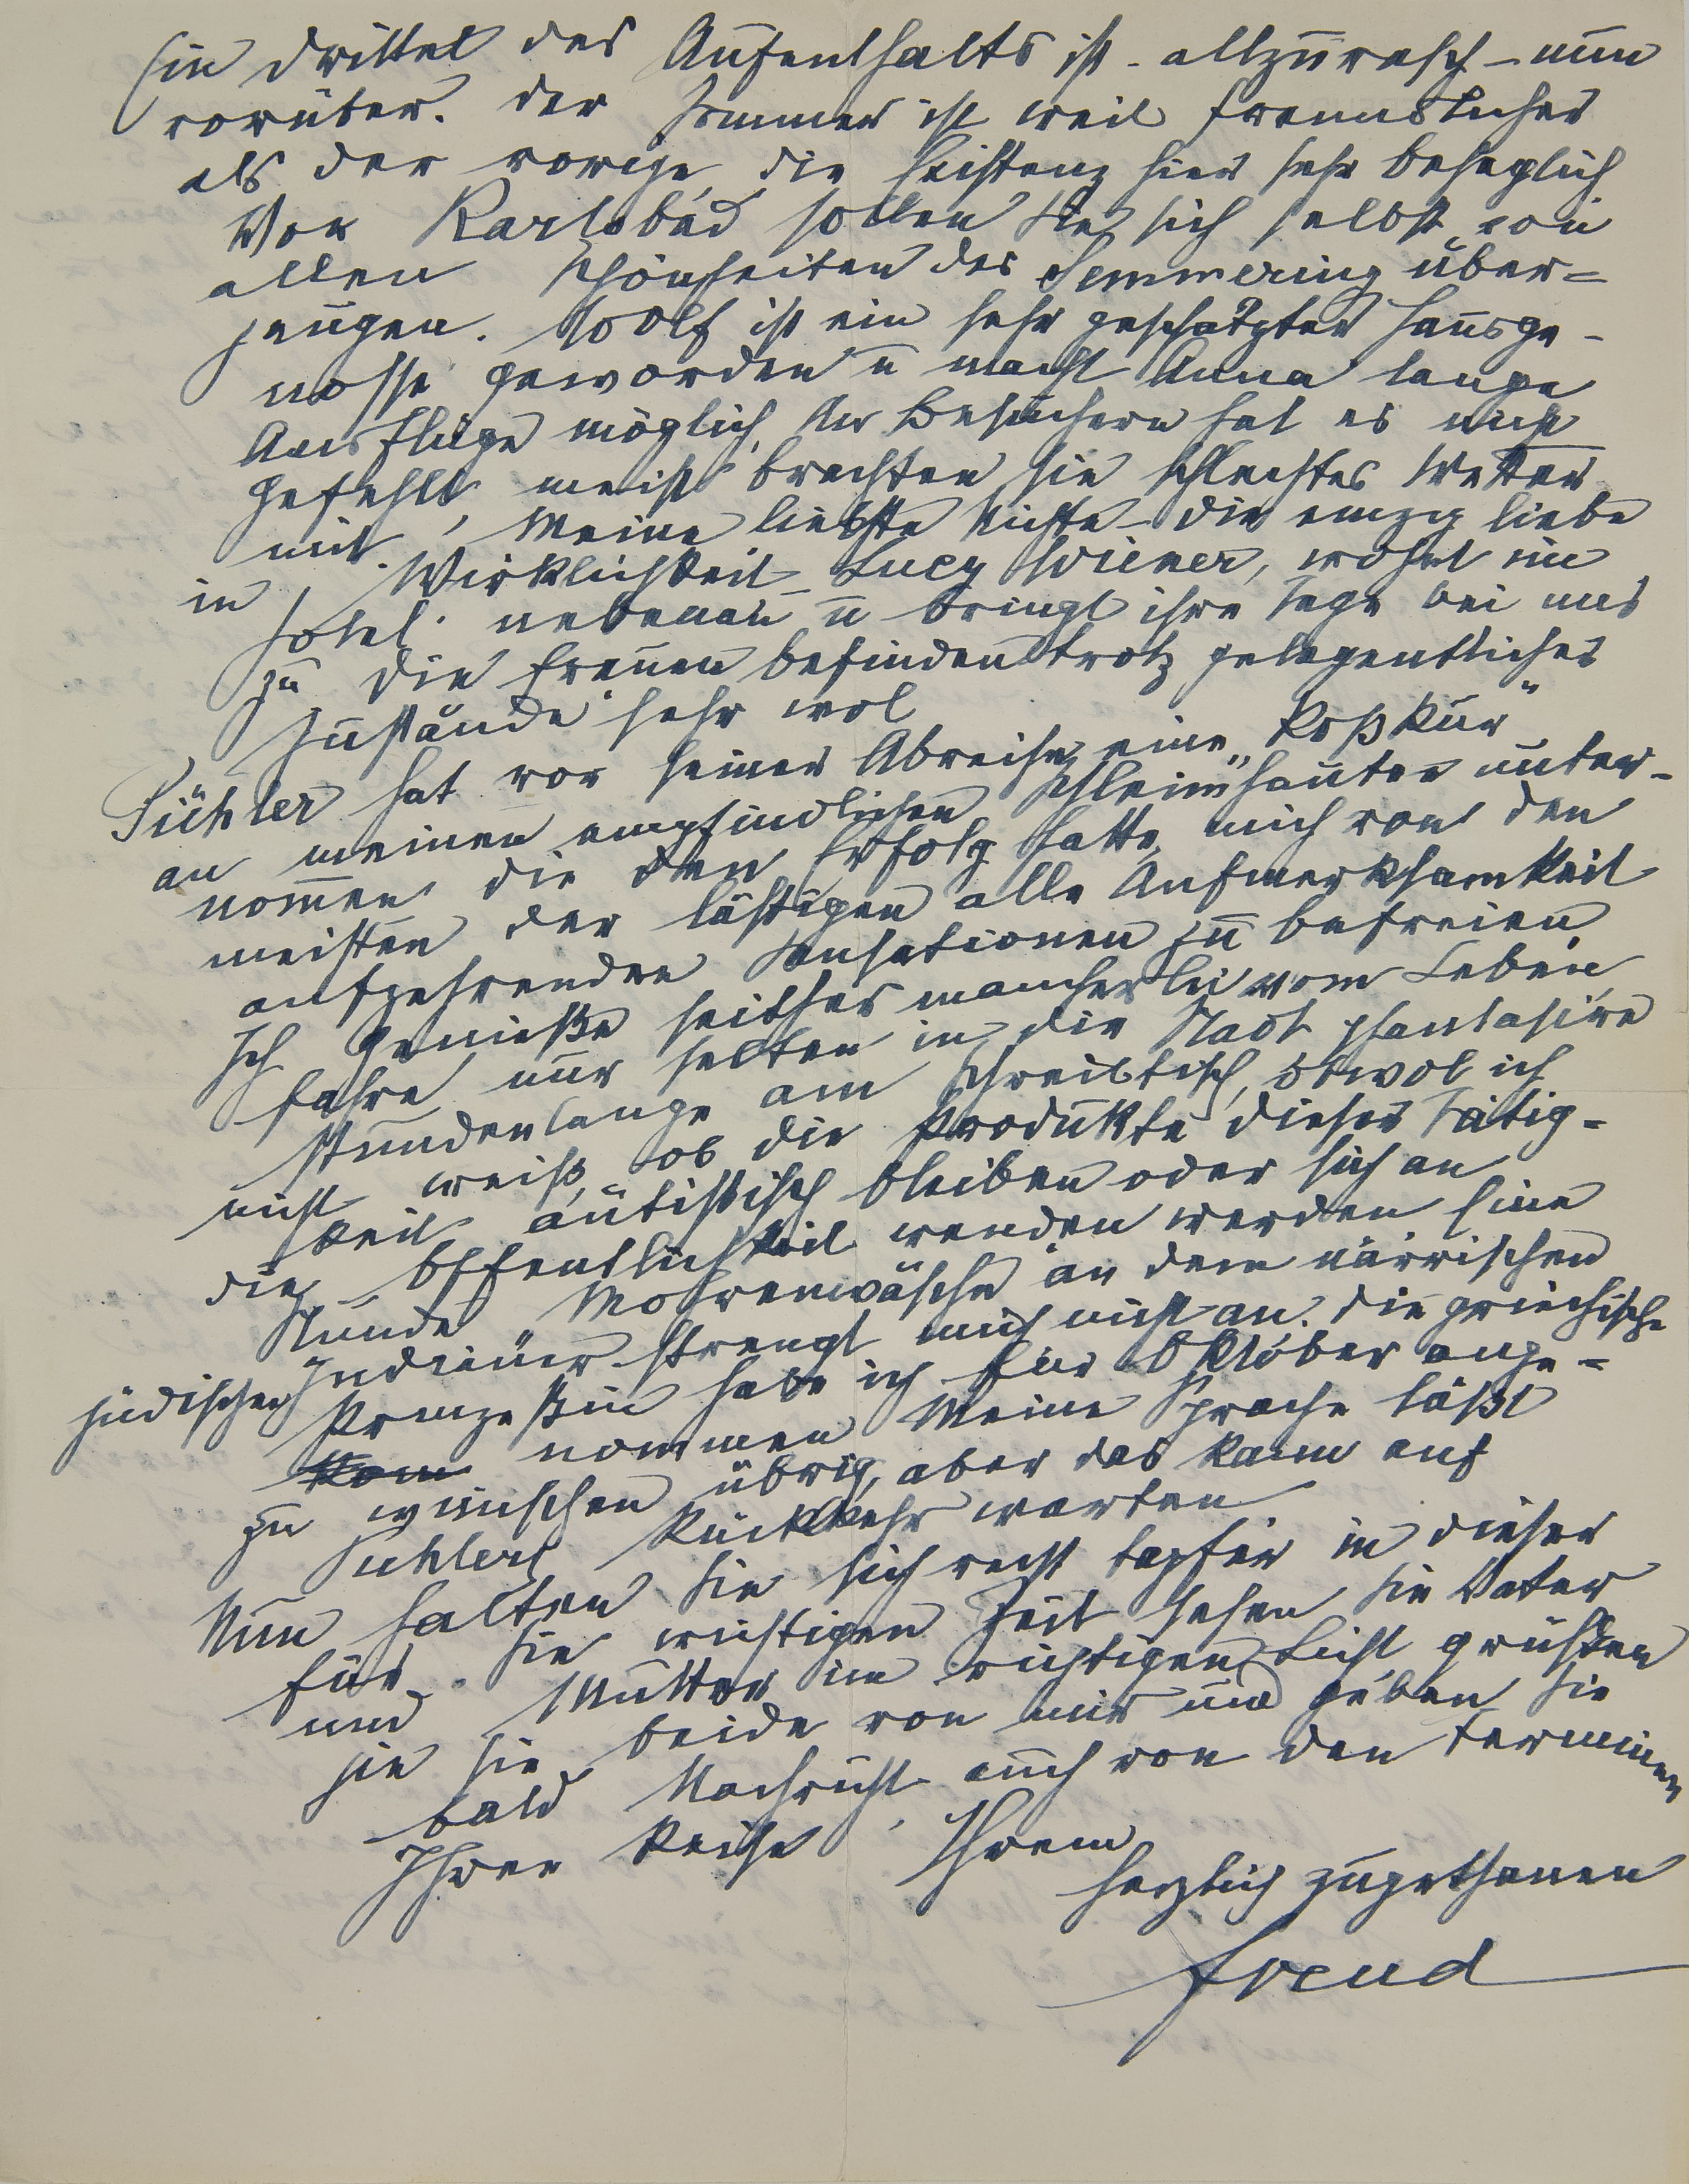 Ein Drittel des Aufenthalts ist - allzurasch - nun
vorüber. Der Sommer ist weit freundlicher
als der vorige, die Existenz hier sehr behaglich
Vor Karlsbad sollen Sie sich selbst von
allen Schönheiten des Semmering über=
zeugen. Wolf ist ein sehr geschätzter Hausge-
nosse geworden u macht Anna lange
Ausflüge möglich. An Besuchern hat es nicht
gefehlt, meist brachten sie schlechtes Wetter
mit. Meine liebste Nichte - die einzig liebe
in Wirklichkeit - Lucy Wiener, wohnt im
Hotel nebenan u bringt ihre Tage bei uns
zu Die Frauen befinden trotz gelegentlicher
Zustände sehr wol
Pichler hat vor seiner Abreise eine „Roßkur"
an meinen empfindlichen Schleimhäuten unter-
nom̄en die den Erfolg hatte, mich von den
meisten der lästigen alle Aufmerksamkeit
aufzehrenden Sensationen zu befreien
Ich genieße seither mancherlei vom Leben,
fahre nur selten in die Stadt phantasire
stundenlange am Schreibtisch, obwol ich
nicht weiß, ob die Produkte dieser Tätig-
keit autistisch bleiben oder sich an
die Öffentlichkeit wenden werden Eine
Stunde Mohrenwäsche an dem närrischen
jüdischen Indianer strengt mich nicht an. Die griechische
Prinzessin habe ich für Oktober ange=
Kom nommen Meine Sprache läßt
zu wünschen übrig, aber das kann auf
Pichlers Rückkehr warten
Nun halten Sie sich recht tapfer in dieser
für Sie wichtigen Zeit sehen Sie Vater
und Mutter im richtigen Licht, grüßen
sie Sie beide von mir und geben Sie
bald Nachricht auch von den Terminen
Ihrer Reise, Ihrem
herzlich zugethanen
Freud